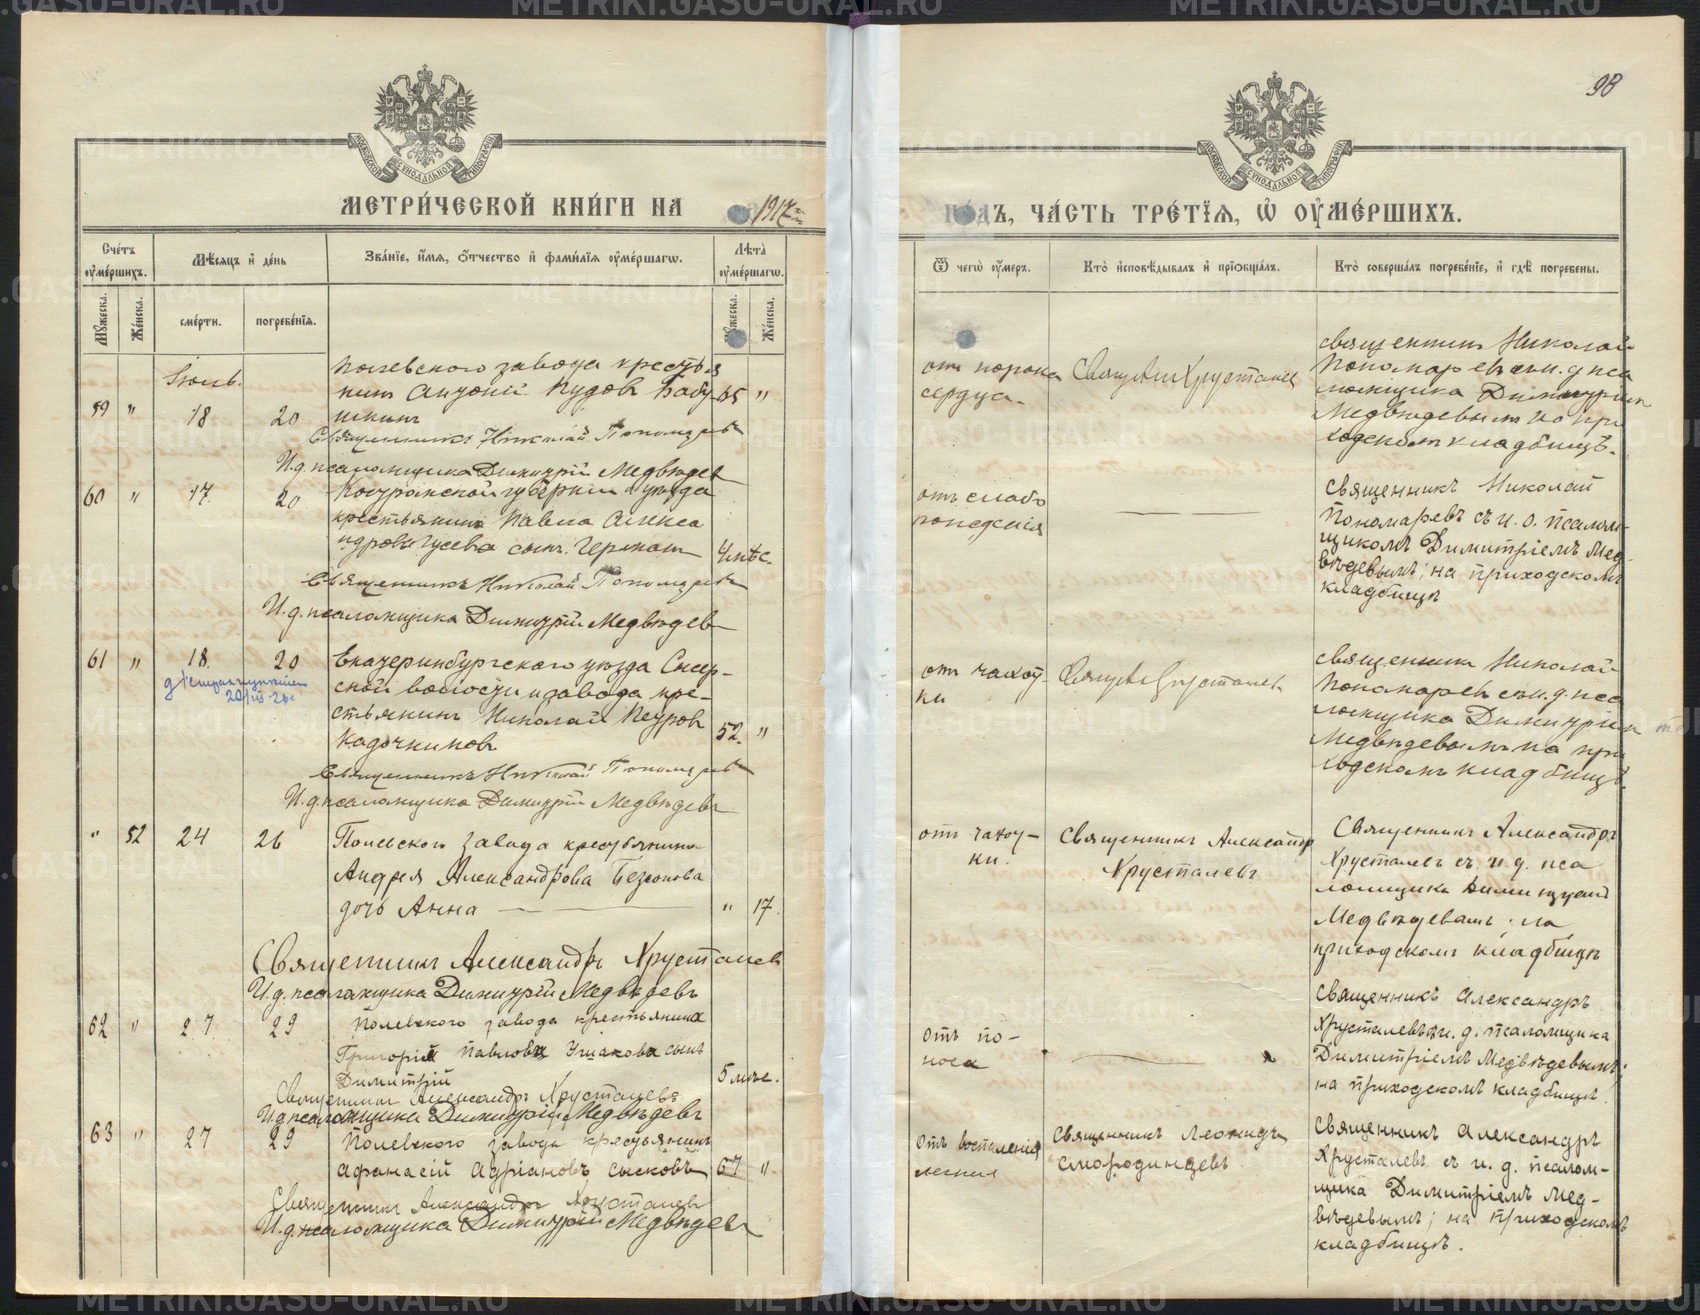 98
МЕТРИ́ЧЕСКОЙ КНИ́ГИ НА 1917
го́дъ, ча́сть тре́тїѧ, ѡ҆ ᲂу҆ме́ршихъ.
Сче́тъ ᲂу҆ме́ршихъ.
Мѣ́сѧцъ и҆ де́нь
Зва́нїе, и҆́мѧ, ѻ҆́тчество и҆ фами́лїѧ ᲂу҆ме́ршагѡ.
Лѣ́та ᲂу҆ме́ршагѡ.
Мꙋ́жеска.
Же́нска.
сме́рти.
погребе́нїѧ.
Мꙋ́жеска.
Же́нска.
Ѿ чегѡ̀ ᲂу҆́меръ.
Кто̀ и҆сповѣ́дывалъ и҆ прїѡбща́лъ.
Кто̀ соверша́лъ погребе́нїе, и҆ гдѣ̀ погребены.
Іюль.
59 " 18 20
Полевского завода крестья
нинъ Антоній Иудовъ Бабу
шкинъ
65 "
Священникъ Николай Пономаревъ
И.д. псаломщика Димитрій Медвѣдевъ
отъ порока
сердца.
Свящ Ал Хрусталев
священник Николай
Пономаревъ съ и. д. пса
ломщика Димитріем
Медвѣдевымъ на при
ходском кладбищѣ.
60 " 17 20
Костромской губерніи и уѣзда
крестьянина Павла Алекса
ндрова Гусева сынъ Германъ
4 мѣс.
Священникъ Николай Пономаревъ
И.д. псаломщика Димитрій Медвѣдевъ
отъ слабо
рожденія
священникъ Николай
Пономаревъ съ и. д. псалом-
щикомъ Димитріемъ Мед-
вѣдевымъ; на приходскомъ
кладбищѣ
61 " 18 20
Екатеринбургского уѣзда Сысер-
ской волости и завода кре-
стьянинъ Николай Петров
Кадочников
52. "
Священникъ Николай Пономаревъ
И.д. псаломщика Димитрій Медвѣдевъ
отъ чахот-
ки
Свящ Ал Хрусталев
священник Николай
Пономаревъ съ и. д. пса
ломщика Димитріем
Медвѣдевымъ на при
ходскомъ кладбищѣ.
" 52 24 26
Полевского завода крестьянина
Андрея Александрова Безсонова
дочь Анна
" 17.
Священникъ Александръ Хрусталев
И.д. псаломщика Димитрій Медвѣдевъ
отъ чахот-
ки.
Священникъ Александръ
Хрусталевъ
Священникъ Александръ
Хрусталевъ съ и. д. пса
ломщика Димитріем
Медвѣдевымъ; на
приходскомъ кладбищѣ
62 " 27 29
Полевского завода крестьянина
Григорія Павлова Ушакова сынъ
Димитрій
5 мѣс.
Священникъ Александръ Хрусталевъ
И.д. псаломщика Димитрій Медвѣдевъ
отъ по-
носа
священникъ Александръ
Хрусталевъ и. д. псаломщика
Димитріемъ Медвѣдевымъ;
на приходскомъ кладбищѣ.
63 " 27 29
Полевского завода крестьянинъ
Афанасій Адріановъ Сысковъ
67 ".
Священникъ Александръ Хрусталевъ
И.д. псаломщика Димитрій Медвѣдевъ
Отъ воспаленія
легкия
священникъ Леонидъ
Смородинцевъ
священникъ Александръ
Хрусталевъ съ и. д. псалом-
щика Димитріемъ Мед-
вѣдевымъ; на приходскомъ
кладбищѣ.
METRIKI.GASU-URAL.RU